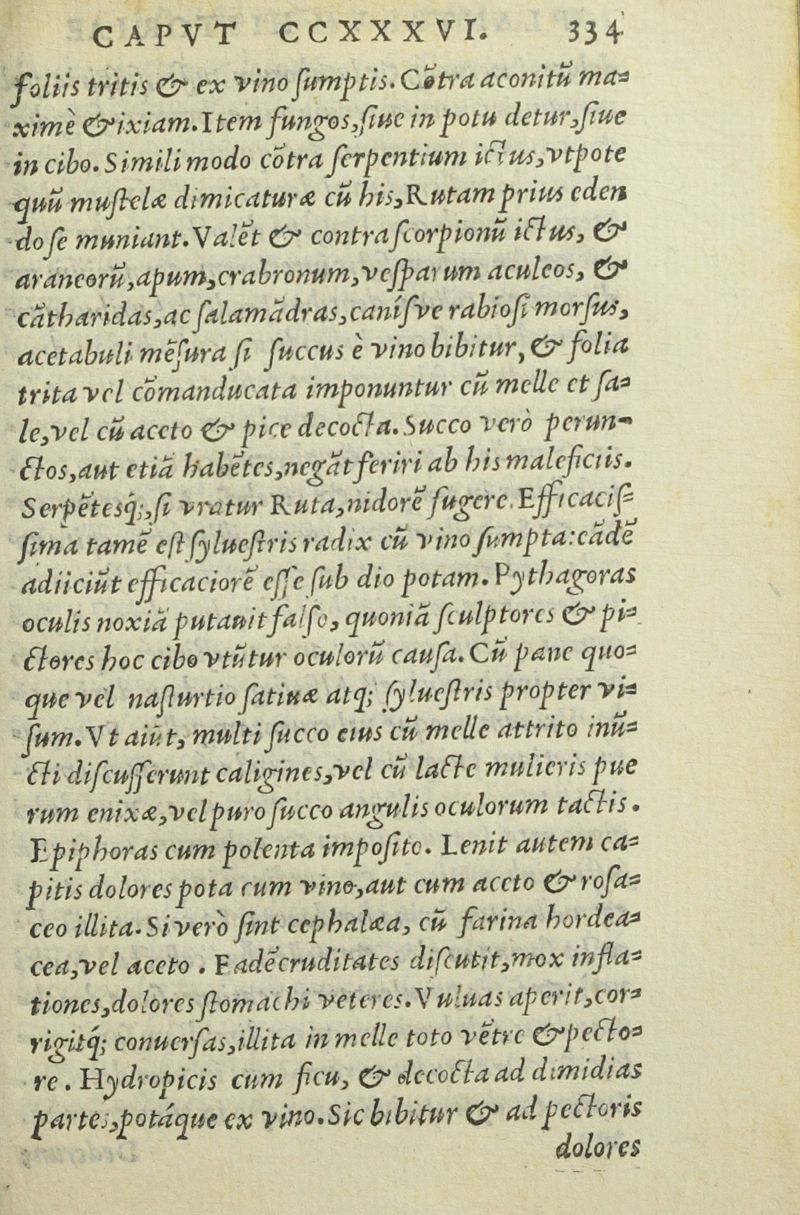 CAPVT CCXXXVI. 334
foliis tritis & ex vino ſumptis. Cõtra aconitũ ma-
ximè & ixiam. Item fungos, ſiue in potu detur, ſiue
in cibo. Simili modo cõtra ſerpentium ictus, vtpote
quũ muſtelæ dimicaturæ cũ his, Rutam prius eden
do ſe muniant. Valẽt & contra ſcorpionũ ictus, &
araneorũ, apum, crabronum, veſparum aculeos, &
cãtharidas, ac ſalamãdras, caniſve rabioſi morſus,
acetabuli mẽſura ſi ſuccus è vino bibitur, & folia
trita vel cõmanducata imponuntur cũ melle et ſa-
le, vel cũ aceto & pice decocta. Succo verò perun-
ctos, aut etiã habẽtes, negãt feriri ab his maleficiis.
Serpẽtesq;, ſi vratur Ruta, nidorẽ fugere. Efficaciſ-
ſima tamẽ eſt ſylueſtris radix cũ vino ſumpta: eãdẽ
adiiciũt efficaciorẽ eſſe ſub dio potam. Pythagoras
oculis noxiã putauit falſo, quoniã ſculptores & pi-
ctores hoc cibo vtũtur oculorũ cauſa. Cũ pane quo-
que vel naſturtio ſatiuæ atq; ſylueſtris propter vi-
ſum. Vt aiũt, multi ſucco eius cũ melle attrito inũ-
cti diſcuſſerunt caligines, vel cũ lacte mulieris pue
rum enixæ, vel puro ſucco angulis oculorum tactis.
Epiphoras cum polenta impoſito. Lenit autem ca-
pitis dolores pota cum vino, aut cum aceto & roſa-
ceo illita. Si verò ſint cephalæa, cũ farina hordea-
cea, vel aceto. Eadẽ cruditates diſcutit, mox infla-
tiones, dolores ſtomachi veteres. Vuluas aperit, cor-
rigitq́; conuerſas, illita in melle toto vẽtre & pecto-
re. Hydropicis cum ficu, & decocta ad dimidias
partes, potáque ex vino. Sic bibitur & ad pectoris
dolores